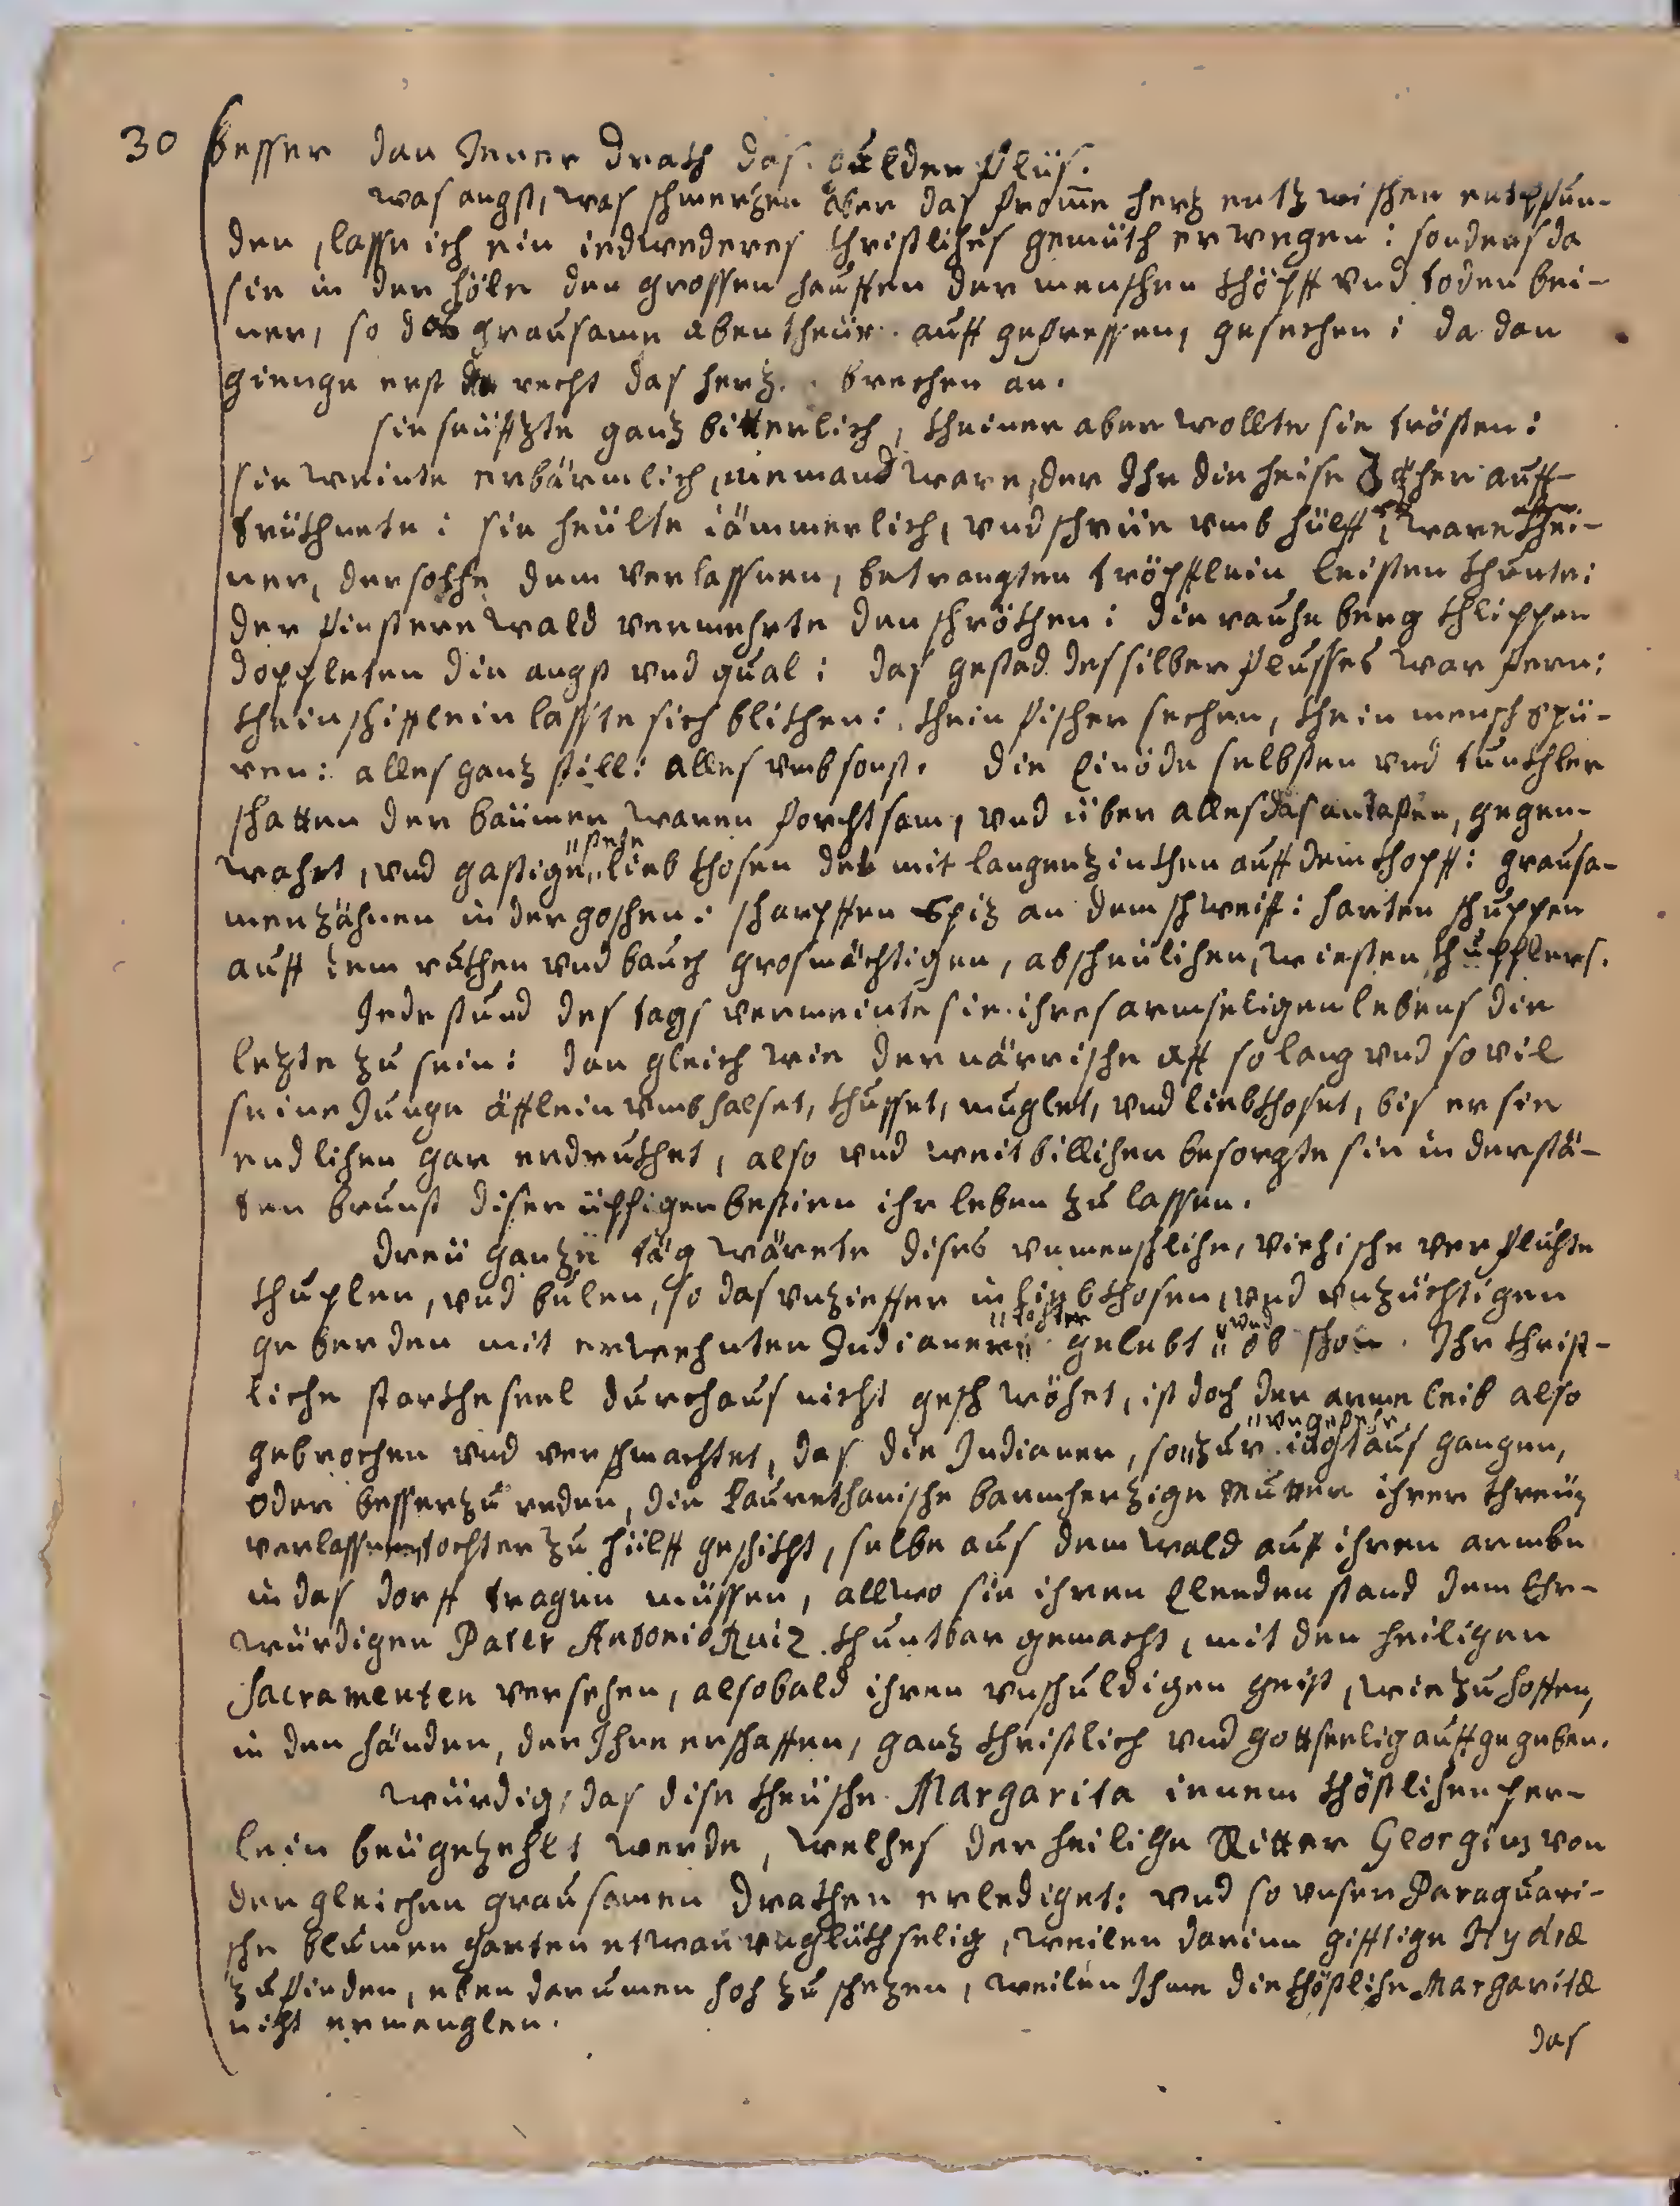 30 besser dan Jener Drath das gulden flüs.
was angst, was schmerzen aber das from̄e hertz entzwischen entpfun-
den, lasse ich ein iedwederes christliches gemüth erwegen: sonders da
sie in der höle den grossen hauffen der menschen khöpff vnd toden bei-
ner, so das grausame abentheür auff gefressen, gesechen: da dan
gienge erst recht das hertz brechen an.
sie seüfftzte gantz bitterlich, kheiner aber wollte sie trösten:
sie weinte erbärmlich, niemand ware, der Ihr die heise Zächer auff-
trükhnete: sie heülte iämmerlich, vnd schrüe vmb hülff, ware khei-
ner, der solche dem verlassnen, betrangten tröpfflein leisten khunte:
der finstere wald vermehrte den schrökhen: die rauhe berg khlippen
doppleten die angst vnd qual: das gestad des silber flusses war fern:
khein schifflein lasste sich blikhen: khein fischer sechen, khein mensch spü-
ren: alles gantz still: alles vmbsonst. die Einöde selbsten vnd tunkhler
schatten der baümer waren forchtsam, vnd über alles das antasten, gegen-
"stete
wahrt, vnd gastige" liebkhosen des mit langen zinkhen auff dem khopff: grausa-
men zähnen in der goschen: scharpffen Spiz an dem schweif: harten schuppen
auff dem rukhen vnd bauch grosmächtigen, abscheülichen, wiesten khupplers.
Jede stund des tags vermeinte sie ihres armseligen lebens die
letzte zu sein: dan gleich wie der närrische aff so lang vnd so vil
seine Junge äfflein vmbhalset, khusset, muglet, vnd liebkhoset, bis er sie
endlichen gar erdrukhet, also vnd weit billicher besorgte sie in der stä-
ten brunst diser üppigen bestien ihr leben zu lassen.
dreü gantze täg wärete dises vnmenschliche, viehische verfluchte
khuplen, vnd bulen, so das vnzieffer in liebkhosen, vnd vnzüchtigen
"tochter "vnd
geberden mit erwehnten Indianern" gelebt" ob schon Ihr christ-
liche starkhe seel durchaus nicht geschwöhet, ist doch der arme leib also
"vngefehr
gebrochen vnd verschmachtet, das die Indianer, so" zur iagt aus gangen,
oder besser zu reden, die Laurethanische barmhertzige Mutter ihrer threüz
verlassnen tochter zu hülff geschikht, selbe aus dem wald auf ihren armben
in das dorff tragen müssen, allwo sie ihren Elenden stand dem Ehr-
würdigen Pater Antonio Ruiz khuntbar gemacht, mit den heiligen
Sacramenten versehen, alsobald ihren vnschuldigen geist, wie zu hoffen,
in den händen, der Ihne erschaffen, gantz christlich vnd gottseelig auffgegeben.
würdig, das dise kheüsche Margarita ienem khöstlichen per-
lein beügezehlt werde, welches der heilige Ritter Georgius von
dergleichen grausamen Drakhen erlediget: vnd so vnser Paraquari-
sche blumen garten etwan vnglükhselig, weilen darinn gifftige Hydræ
zu finden, eben darumen hoh zu schezen, weilen Ihme die khöstliche Margaritæ
nicht ermanglen.
das